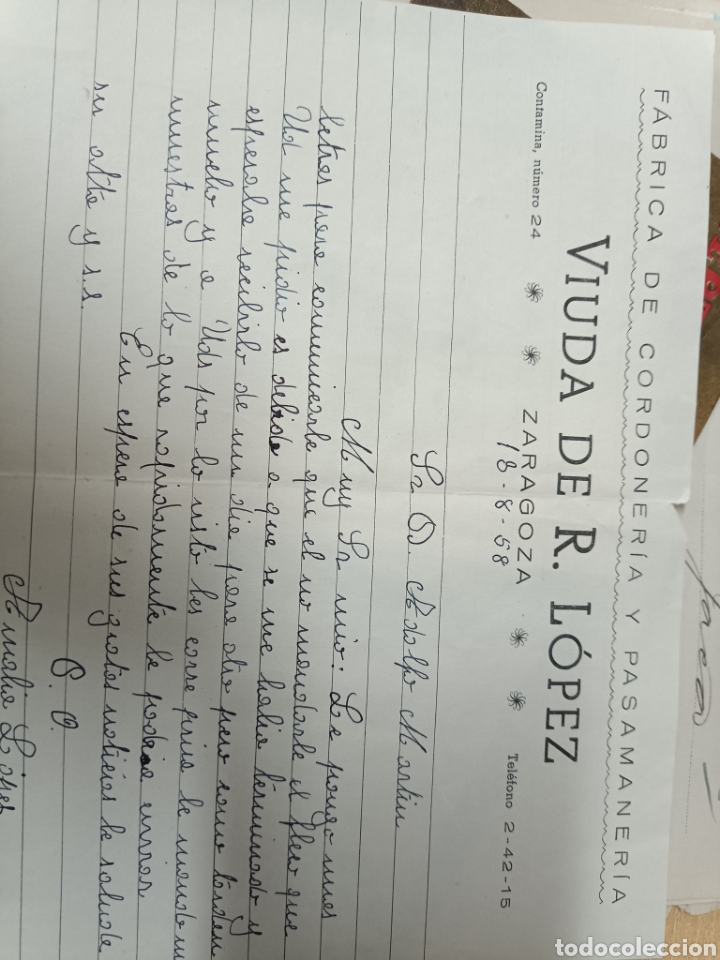 FÁBRICA DE CORDONERÍA Y PASAMANERÍA
VIUDA DE R. LÓPEZ
Contamina, número 24 ZARAGOZA Teléfono 2-42-15
18-8-58
Sr. D. Adolfo Martin
Muy Sr mio: Le pongo unas
letras para comunicarle que el no mandarle el fleco que
Ud me pidio es debido a que se me habia terminado y
esperaba recibirlo de un dia para otro pero como tardan
mucho y a Uds por lo visto les corre prisa le mando
muestras de lo que rapidamente le podria enviar
En espera de sus gratas noticias le saluda
su atta y s.s.
P.O.
Amalia López
todocoleccion